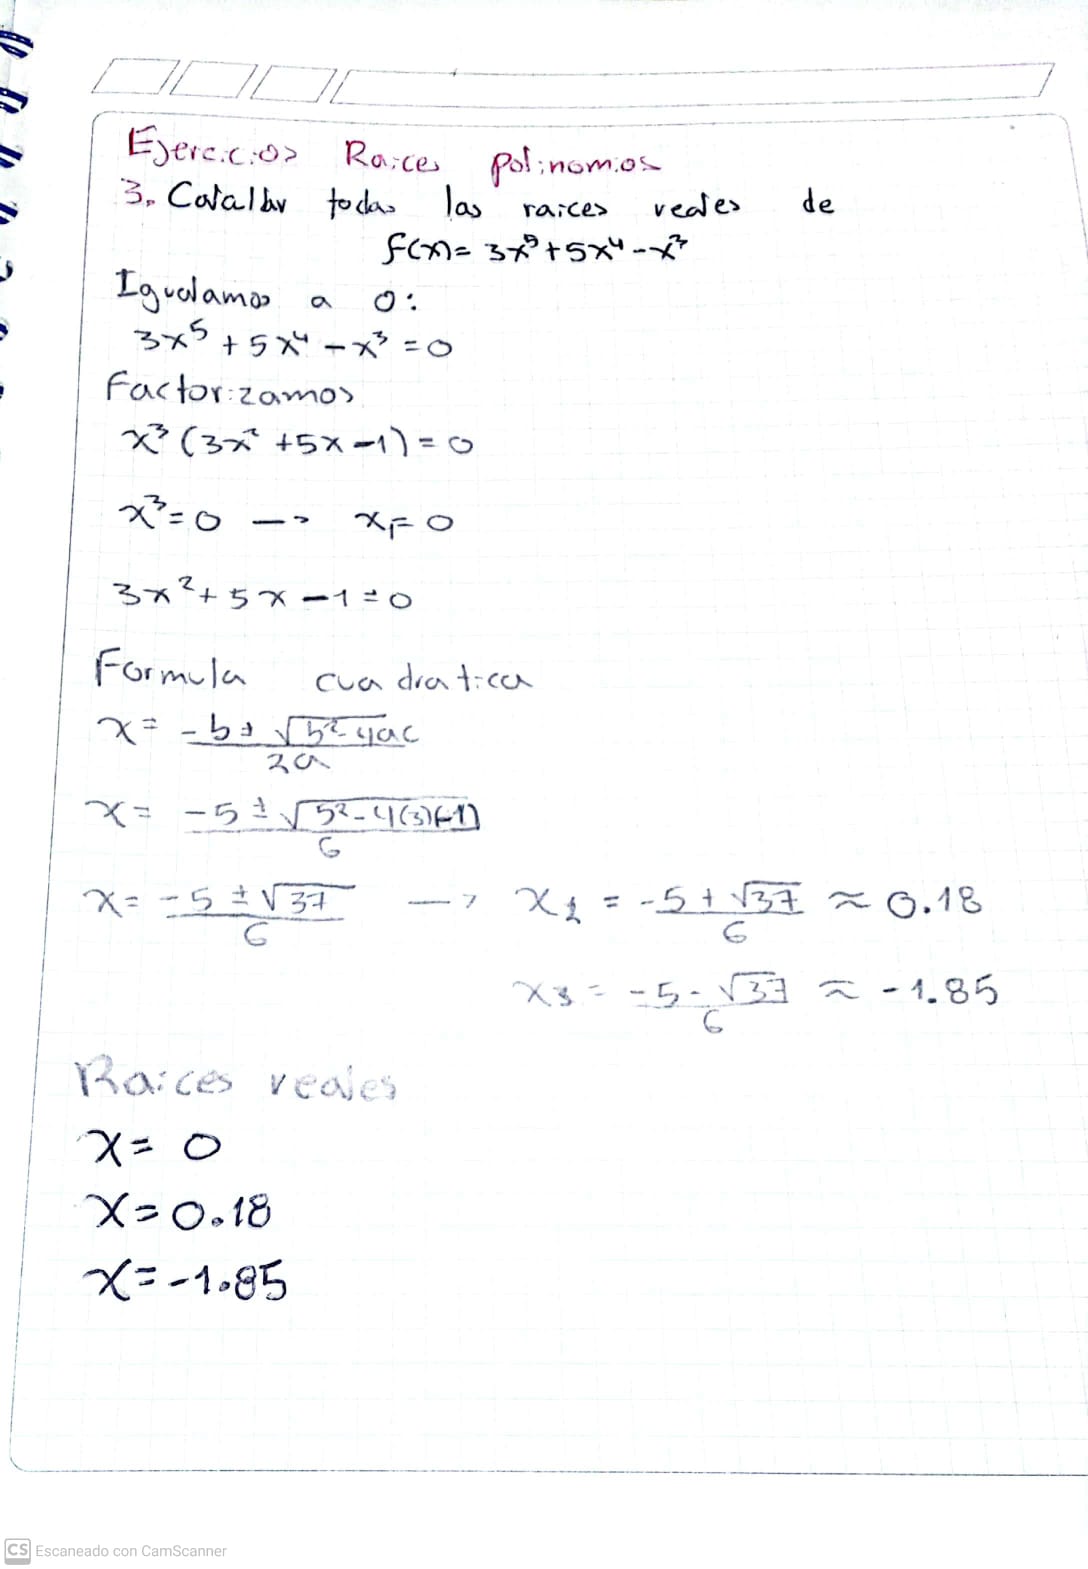 Ejercicios Raices polinomios
3. Calcular todas las raices reales de
f(x) = 3x⁵ + 5x⁴ - x³
Igualamos a 0:
3x⁵ + 5x⁴ - x³ = 0
Factorizamos
x³ (3x² + 5x - 1) = 0
x³ = 0 → x₁ = 0
3x² + 5x - 1 = 0
Formula cuadratica
x = (-b ± √(b² - 4ac)) / 2a
x = (-5 ± √(5² - 4(3)(-1))) / 6
x = (-5 ± √37) / 6 → x₂ = (-5 + √37) / 6 ≈ 0.18
x₃ = (-5 - √37) / 6 ≈ -1.85
Raices reales
x = 0
x = 0.18
x = -1.85
CS Escaneado con CamScanner